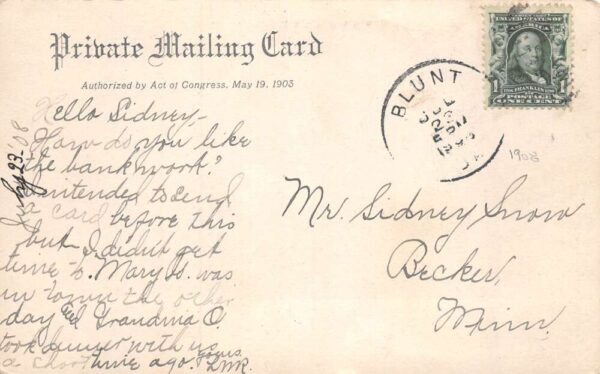 Private Mailing Card
Authorized by Act of Congress, May 19, 1903
UNITED STATES OF
AMERICA
1 FRANKLIN 1
POSTAGE
ONE CENT
BLUNT
1908
July 23 '08
Hello Sidney,-
How do you like
the bank work?
I intended to send
a card before this
but I didn't get
time to. Mary H. was
in town the other
day and Grandma O.
took dinner with us
a short time ago. Yours
L.M.R.
Mr. Sidney Snow
Becker,
Minn.